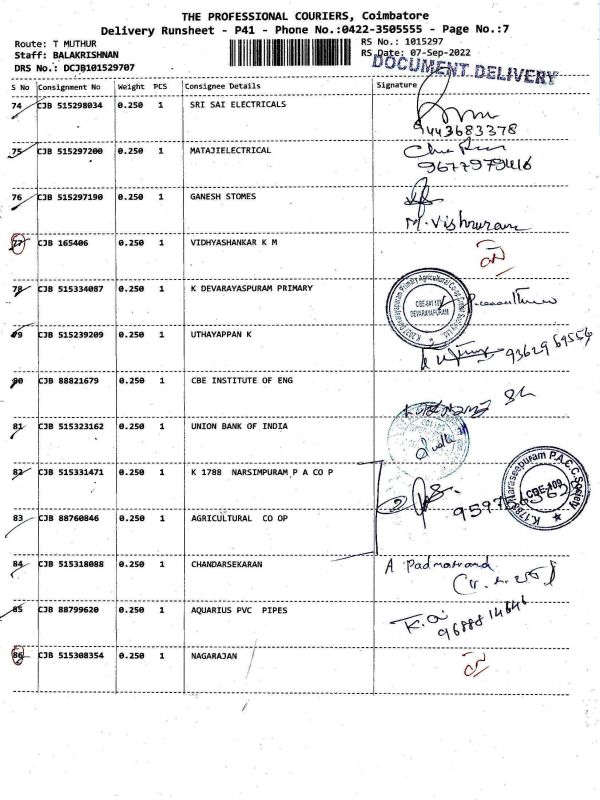 THE PROFESSIONAL COURIERS, Coimbatore
Delivery Runsheet - P41 - Phone No.:0422-3505555 - Page No.:7
Route: T MUTHUR
RS No.: 1015297
Staff: BALAKRISHNAN
RS Date: 07-Sep-2022
DRS No.: DCJB101529707
DOCUMENT DELIVERY
S No Consignment No Weight PCS Consignee Details Signature
74 CJB 515298034 0.250 1 SRI SAI ELECTRICALS
9443683378
75 CJB 515297200 0.250 1 MATAJIELECTRICAL
9677979416
76 CJB 515297190 0.250 1 GANESH STOMES
M. Vishnuram
77 CJB 165406 0.250 1 VIDHYASHANKAR K M
78 CJB 515334087 0.250 1 K DEVARAYASPURAM PRIMARY
DEVARAYAPURAM
79 CJB 515239209 0.250 1 UTHAYAPPAN K
9362969556
80 CJB 88821679 0.250 1 CBE INSTITUTE OF ENG
81 CJB 515323162 0.250 1 UNION BANK OF INDIA
82 CJB 515331471 0.250 1 K 1788 NARSIMPURAM P A CO P
CBE-109
83 CJB 88760846 0.250 1 AGRICULTURAL CO OP
84 CJB 515318088 0.250 1 CHANDARSEKARAN
A Padmavand
85 CJB 88799620 0.250 1 AQUARIUS PVC PIPES
9688814646
86 CJB 515308354 0.250 1 NAGARAJAN